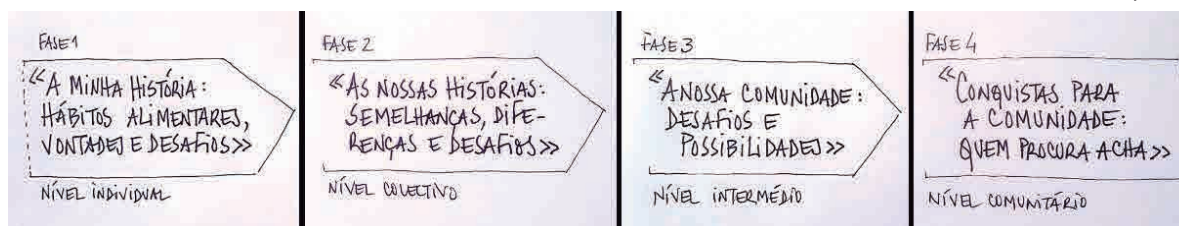 FASE 1
«A MINHA HISTÓRIA:
HÁBITOS ALIMENTARES,
VONTADES E DESAFIOS»
NÍVEL INDIVIDUAL
FASE 2
«AS NOSSAS HISTÓRIAS:
SEMELHANÇAS, DIFE-
RENÇAS E DESAFIOS»
NÍVEL COLECTIVO
FASE 3
«A NOSSA COMUNIDADE:
DESAFIOS E
POSSIBILIDADES»
NÍVEL INTERMÉDIO
FASE 4
«CONQUISTAS PARA
A COMUNIDADE:
QUEM PROCURA ACHA»
NÍVEL COMUNITÁRIO